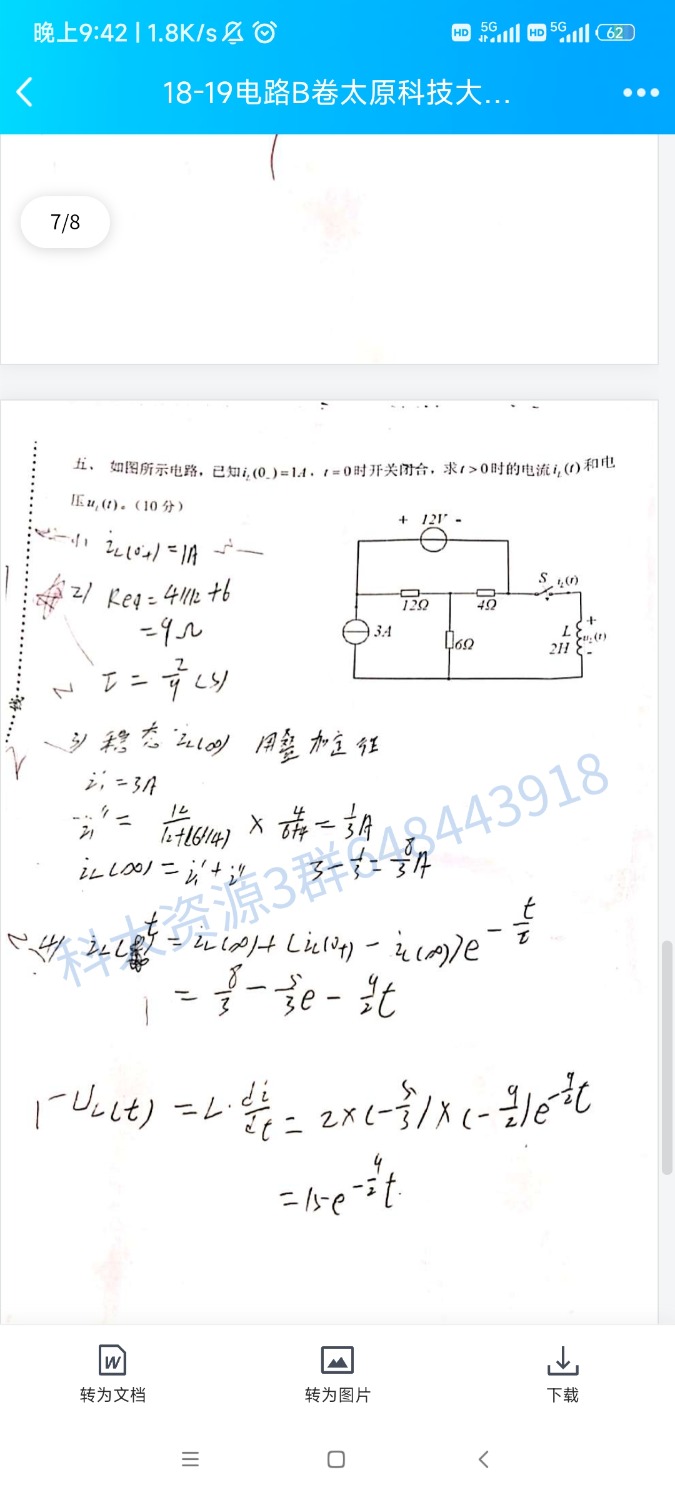 晚上9:42 | 1.8K/s
HD 5G HD 5G 62
18-19电路B卷太原科技大...
7/8
五、如图所示电路，已知i_L(0_)=1A，t=0时开关闭合，求t>0时的电流i_L(t)和电
压u_L(t)。(10分)
+ 12V -
12Ω
4Ω
S i_L(t)
3A
6Ω
L
2H
+
u_L(t)
-
1) i_L(0+)=1A
2) Req = 4//12+6
=9Ω
τ = 2/9 (s)
3) 稳态 i_L(∞) 用叠加定理
i_1' = 3A
i_1'' = 12/(12+(6//4)) × 4/(6+4) = 1/3 A
i_L(∞) = i_1' + i_1'' 3 - 1/3 = 8/3 A
4) i_L(t) = i_L(∞) + (i_L(0+) - i_L(∞)) e^(-t/τ)
= 8/3 - 5/3 e - 9/2 t
u_L(t) = L · di/dt = 2×(-5/3)×(-9/2) e^(-9/2 t)
= 15e^(-9/2 t)
科大资源3群648443918
转为文档
转为图片
下载